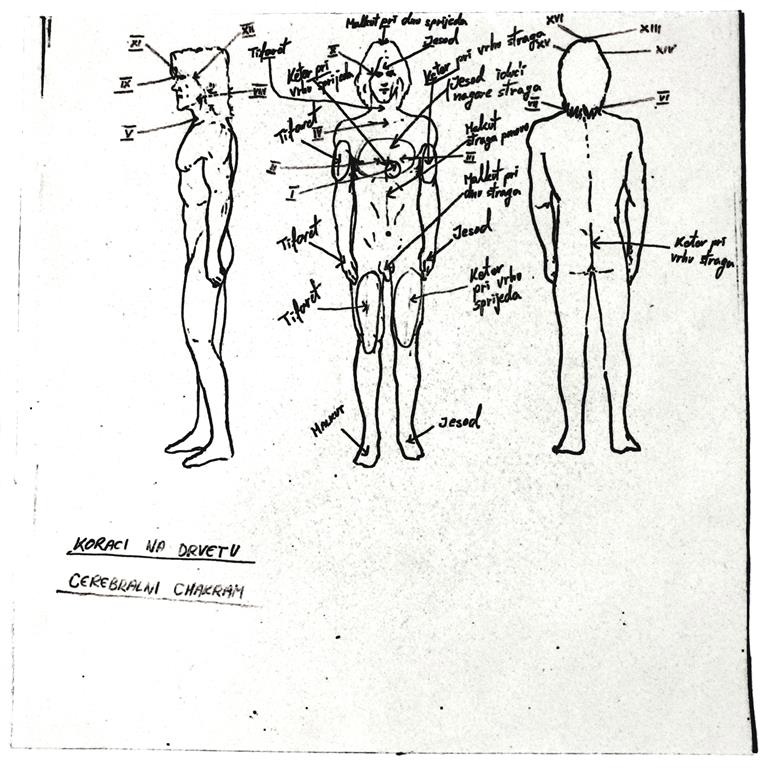 XI
XII
IX
VIII
V
Malkut pri dnu sprijeda
Jesod
Tiforet
II
Keter pri
vrhu sprijeda
Keter pri vrhu straga
Jesod idući
nagore straga
Tiforet
IV
Malkut
straga
III
I
Malkut pri
dnu straga
Tiforet
Jesod
Tiforet
Keter
pri vrhu
sprijeda
MALKUT
Jesod
XVI
XIII
XV
XIV
VII
VI
Keter pri
vrhu straga
KORACI NA DRVETU
CEREBRALNI CHAKRAM